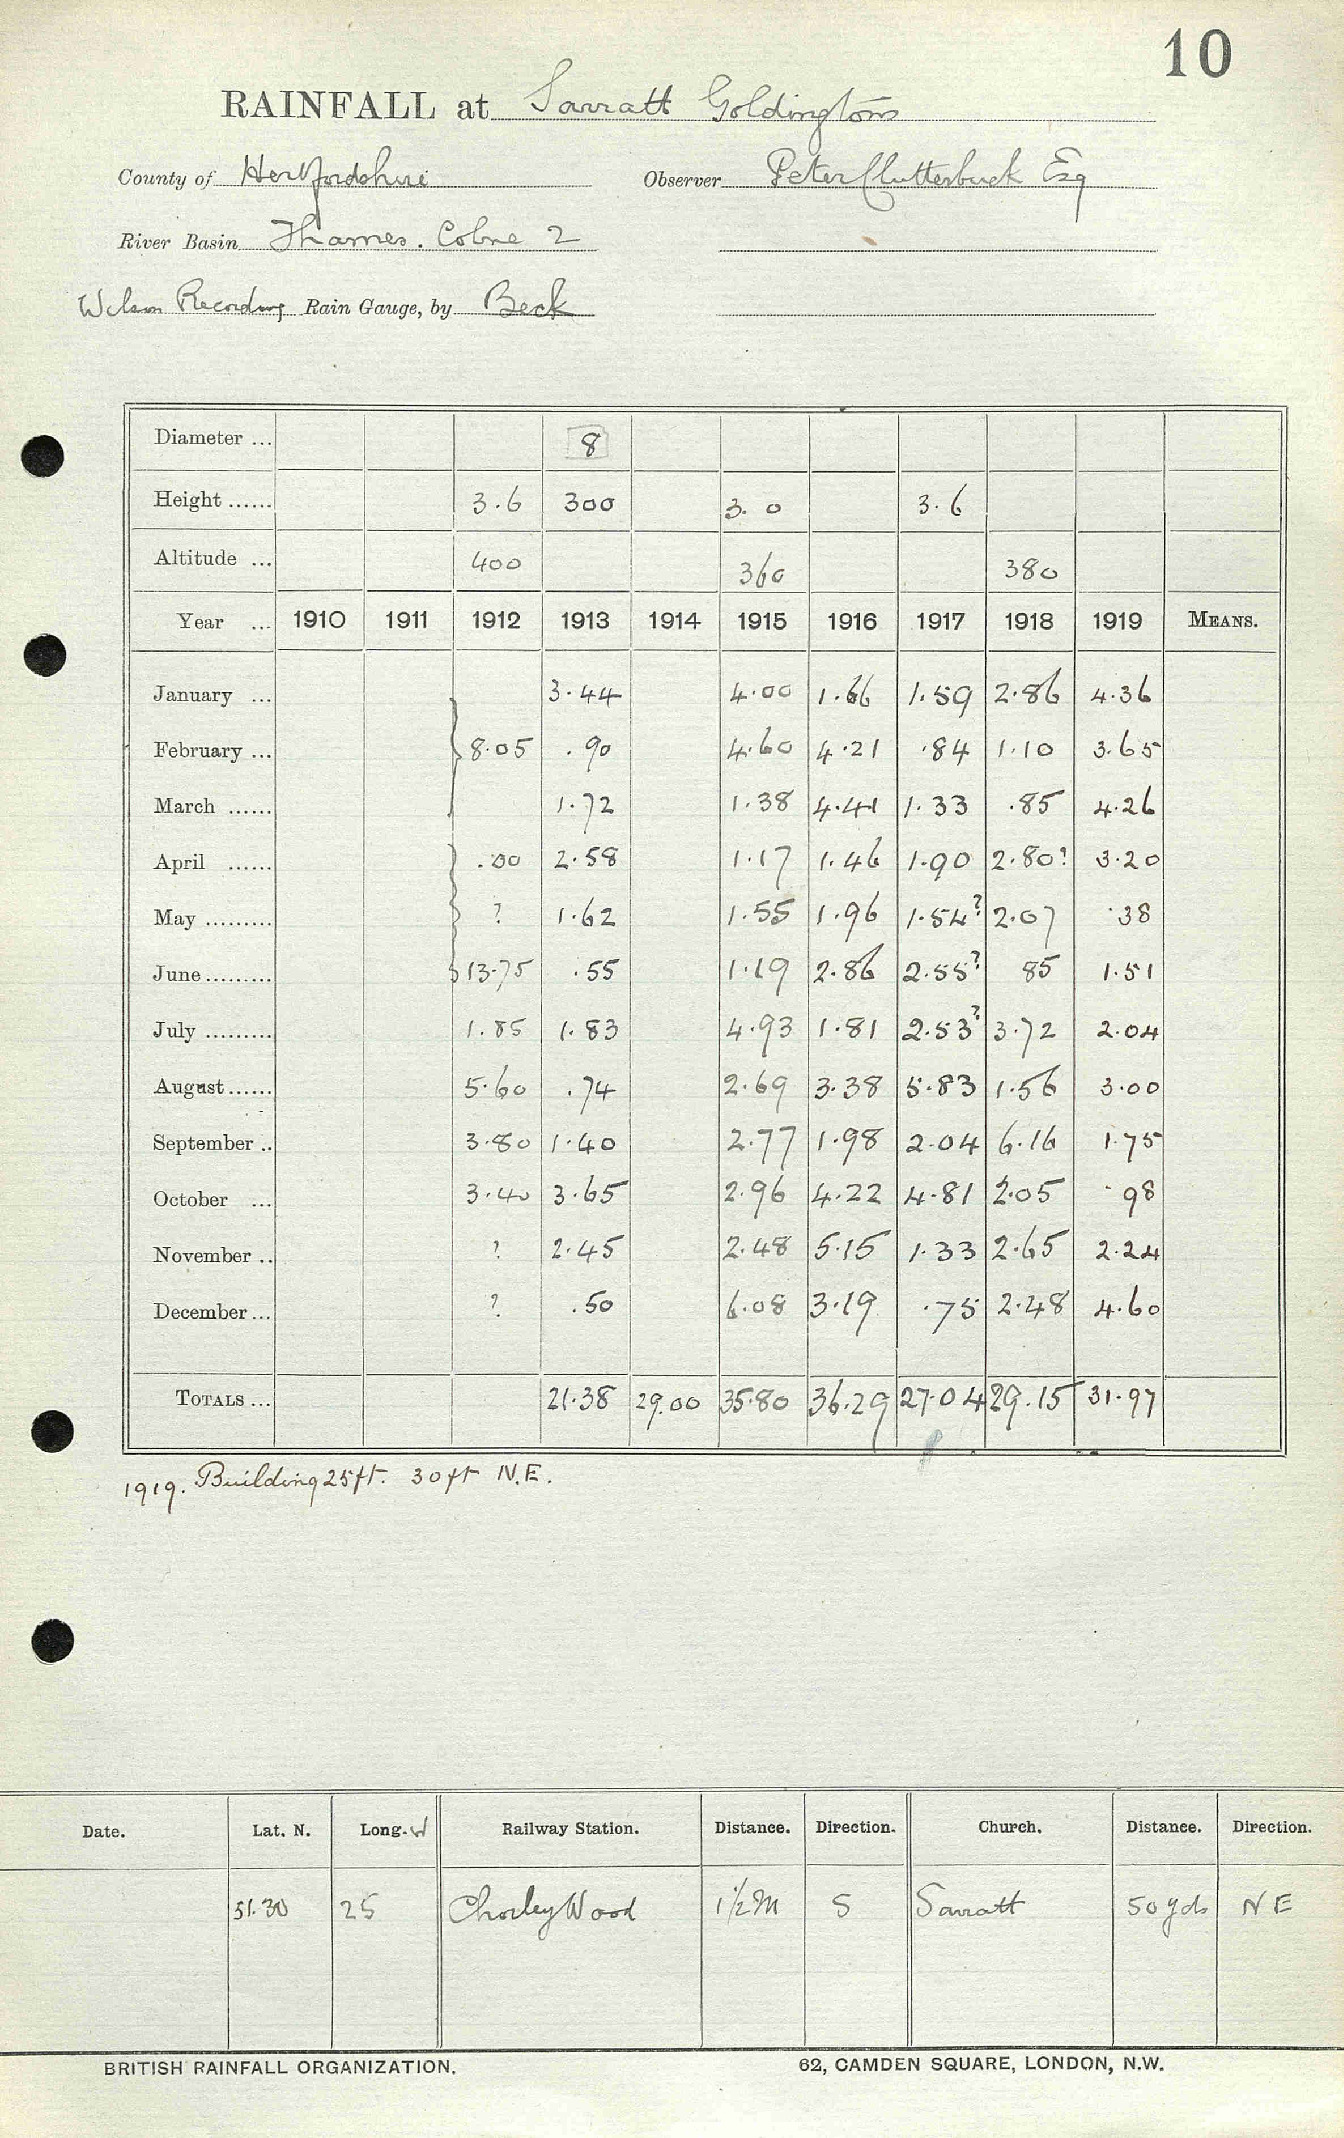 10
RAINFALL at Sarratt Goldingtons
County of Hertfordshire Observer Peter Clutterbuck Esq
River Basin Thames. Colne 2
Wilson Recording Rain Gauge, by Beck
Diameter ... 8
Height ...... 3.6 300 3.0 3.6
Altitude ... 400 360 380
Year ... 1910 1911 1912 1913 1914 1915 1916 1917 1918 1919 MEANS.
January ... 3.44 4.00 1.66 1.59 2.86 4.36
February ... 8.05 .90 4.60 4.21 .84 1.10 3.65
March ...... 1.72 1.38 4.41 1.33 .85 4.26
April ...... .00 2.58 1.17 1.46 1.90 2.80? 3.20
May ......... ? 1.62 1.55 1.96 1.54? 2.07 .38
June ......... 13.75 .55 1.19 2.86 2.55? 85 1.51
July ......... 1.85 1.83 4.93 1.81 2.53? 3.72 2.04
August ...... 5.60 .74 2.69 3.38 5.83 1.56 3.00
September .. 3.80 1.40 2.77 1.98 2.04 6.16 1.75
October ... 3.40 3.65 2.96 4.22 4.81 2.05 .98
November .. ? 2.45 2.48 5.15 1.33 2.65 2.24
December ... ? .50 6.08 3.19 .75 2.48 4.60
TOTALS ... 21.38 29.00 35.80 36.29 27.04 29.15 31.97
1919. Building 25ft. 30ft N.E.
Date. Lat. N. Long. W Railway Station. Distance. Direction. Church. Distance. Direction.
51.30 25 Chorley Wood 1½ M S Sarratt 50 yds NE
BRITISH RAINFALL ORGANIZATION. 62, CAMDEN SQUARE, LONDON, N.W.